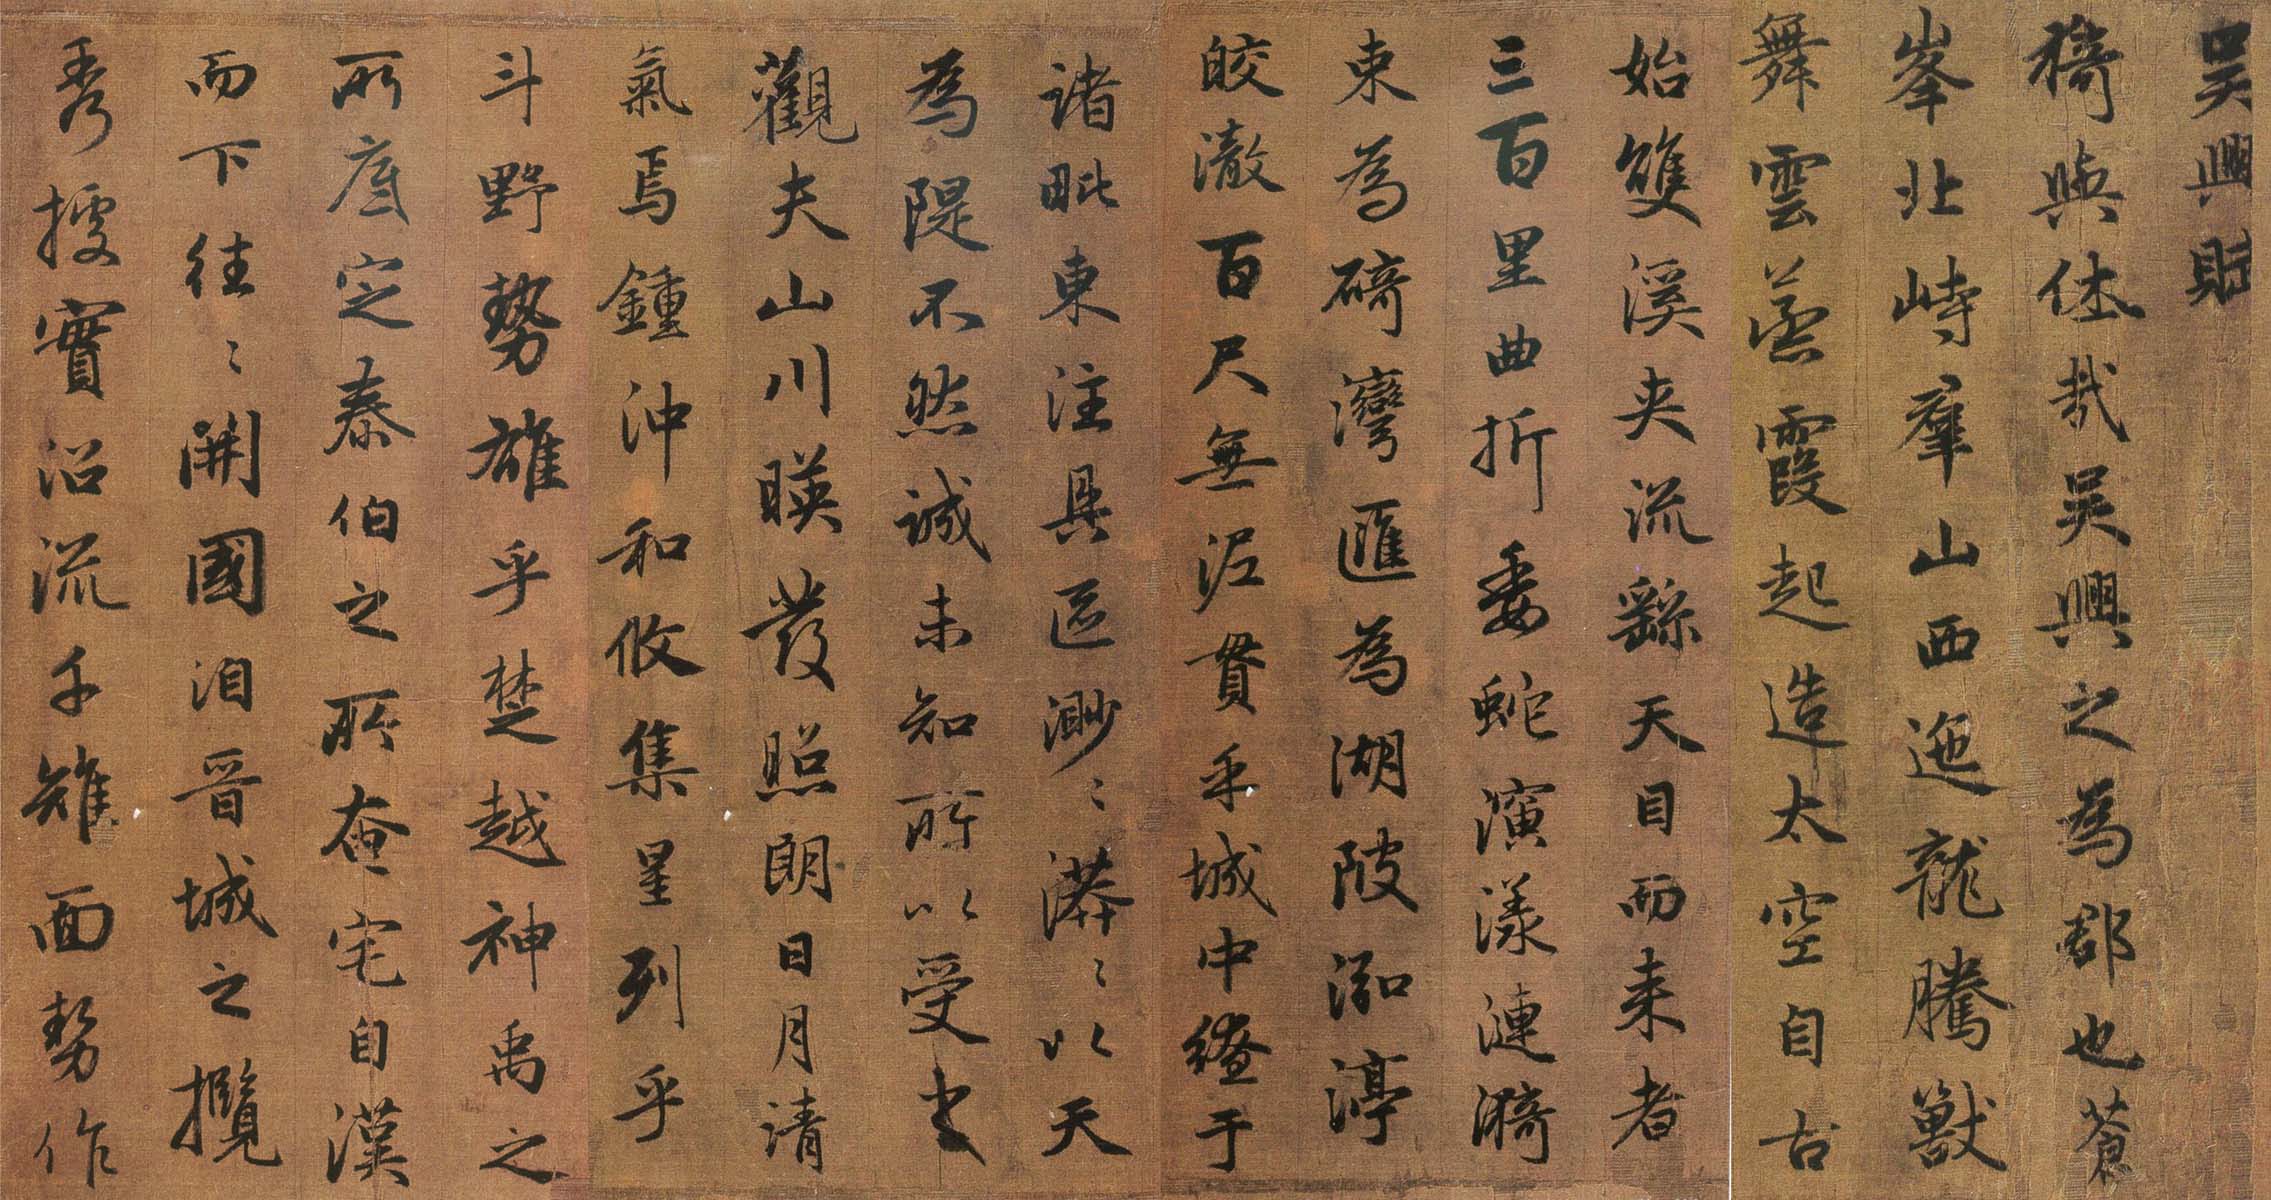 吳興賦
猗與休哉吳興之為郡也蒼
峯北峙羣山西迤龍騰獸
舞雲蒸霞起造太空自古
始雙溪夾流繇天目而來者
三百里曲折委蛇演漾漣漪
束為碕灣匯為湖陂泓渟
皎澈百尺無泥貫乎城中繚于
諸毗東注具區渺〻漭〻以天
為隄不然誠未知所以受之
觀夫山川暎發照朗日月清
氣焉鍾沖和攸集星列乎
斗野勢雄乎楚越神禹之
所底定泰伯之所奄宅自漢
而下往〻開國洎晉城之攬
秀據實沿流千雉面勢作